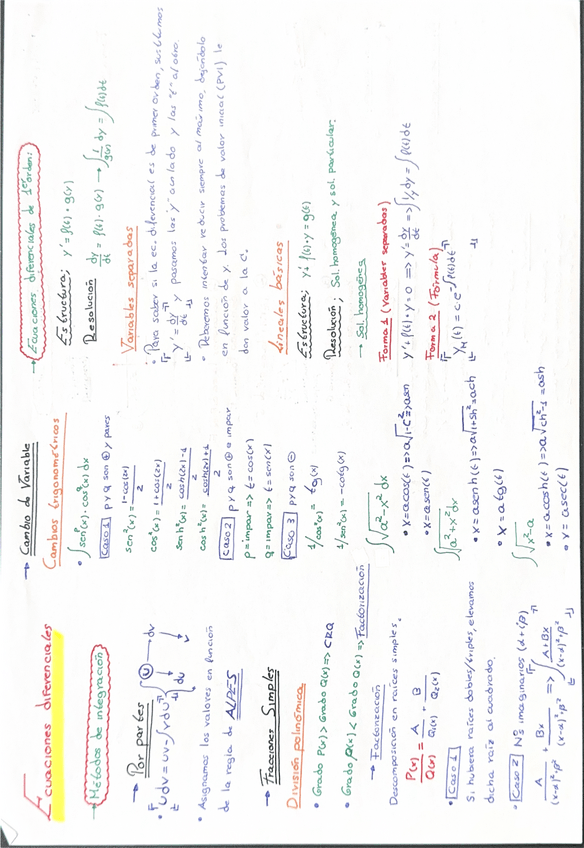 Ecuaciones diferenciales
→ Métodos de integración
→ Por partes
∫U dv = uv - ∫v du
• Asignamos los valores en función
de la regla de ALPES
→ Fracciones Simples
División polinómica
• Grado P(x) > Grado Q(x) => CRQ
• Grado P(x) < Grado Q(x) => Factorización
→ Factorización
Descomposición en raíces simples.
P(x)/Q(x) = A/Q₁(x) + B/Q₂(x)
• Caso 1
Si hubera raíces dobles/triples, elevamos
dicha raíz al cuadrado.
• Caso 2 Nºs imaginarios (α+iβ)
A/((x-α)²+β²) + Bx/((x-α)²+β²) => ∫ (A+Bx)/((x-α)²+β²)
→ Cambio de Variable
Cambios trigonométricos
• ∫ senᵖ(x)·cosᵠ(x) dx
Caso 1 p y q son ⊕ y pares
sen²(x) = (1-cos(2x))/2
cos²(x) = (1+cos(2x))/2
senh²(x) = (cosh(2x)-1)/2
cosh²(x) = (cosh(2x)+1)/2
Caso 2 p y q son ⊕ e impar
p = impar => t = cos(x)
q = impar => t = sen(x)
Caso 3 p y q son ⊖
1/cos²(x) = tg(x)
1/sen²(x) = -cotg(x)
∫√(a²-x²) dx
• x = a cos(t) => a√(1-c²) => a sn
• x = a sen(t)
∫√(a²+x²) dx
• x = a senh(t) => a√(1+sh²) => a ch
• x = a tg(t)
∫√(x²-a)
• x = a cosh(t) => a√(ch²-1) = a sh
• x = a sec(t)
→ Ecuaciones diferenciales de 1er orden:
Estructura; y' = f(t)·g(y)
Resolución
dy/dt = f(t)·g(y) → ∫ 1/g(y) dy = ∫ f(t) dt
Variables separadas
• Para saber si la ec. diferencial es de primer orden, sustituimos
y' = dy/dt y pasamos las y a un lado y las "t" al otro.
• Deberemos intentar reducir siempre al máximo, dejándolo
en función de y. Los problemas de valor inicial (PVI) le
dan valor a la C.
Lineales básicas
Estructura; y' + f(t)·y = g(t)
Resolución; Sol. homogénea y sol. particular.
→ Sol. homogénea
Forma 1 (Variables separadas)
y' + f(t)·y = 0 => y' = dy/dt => ∫ 1/y dy = ∫ f(t) dt
Forma 2 (Fórmula)
y_H(t) = c e^(-∫f(t)dt)